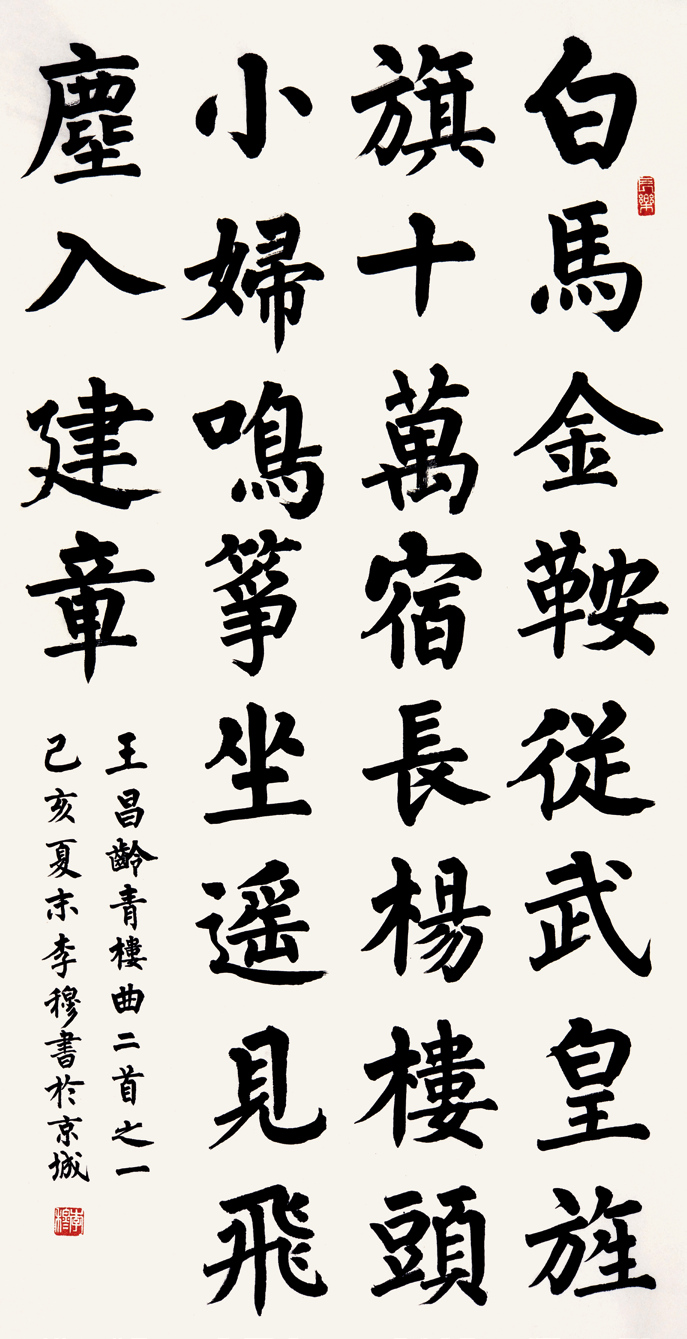 白馬金鞍從武皇旌
旗十萬宿長楊樓頭
小婦鳴箏坐遥見飛
塵入建章
王昌齡青樓曲二首之一
己亥夏末李穆書於京城
長樂
李穆